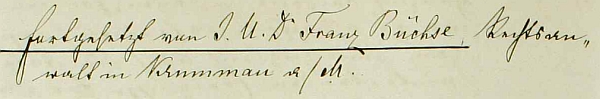 fortgesetzt von J. U. Dr Franz Büchse, Rechtsan„
walt in Krummau a/M.